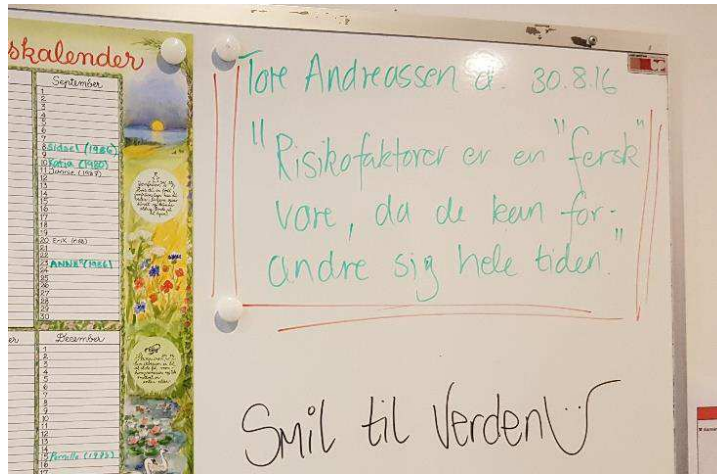 skalender
September
1
2
3
4
5
6
7
8 Sidsel (1986)
9
10 Katja (1980)
11 Jannie (1987)
12
13
14
15
16
17
18
19
20 Erik
21
22
23 ANNE (1986)
24
25
26
27
28
29
30
December
1
2
3
4
5
6
7
8
9
10
11
12
13
14
15 Pernille
16
17
Tore Andreassen d. 30.8.16
"Risikofaktorer er en "fersk"
vare, da de kan for-
andre sig hele tiden."
Smil til Verden